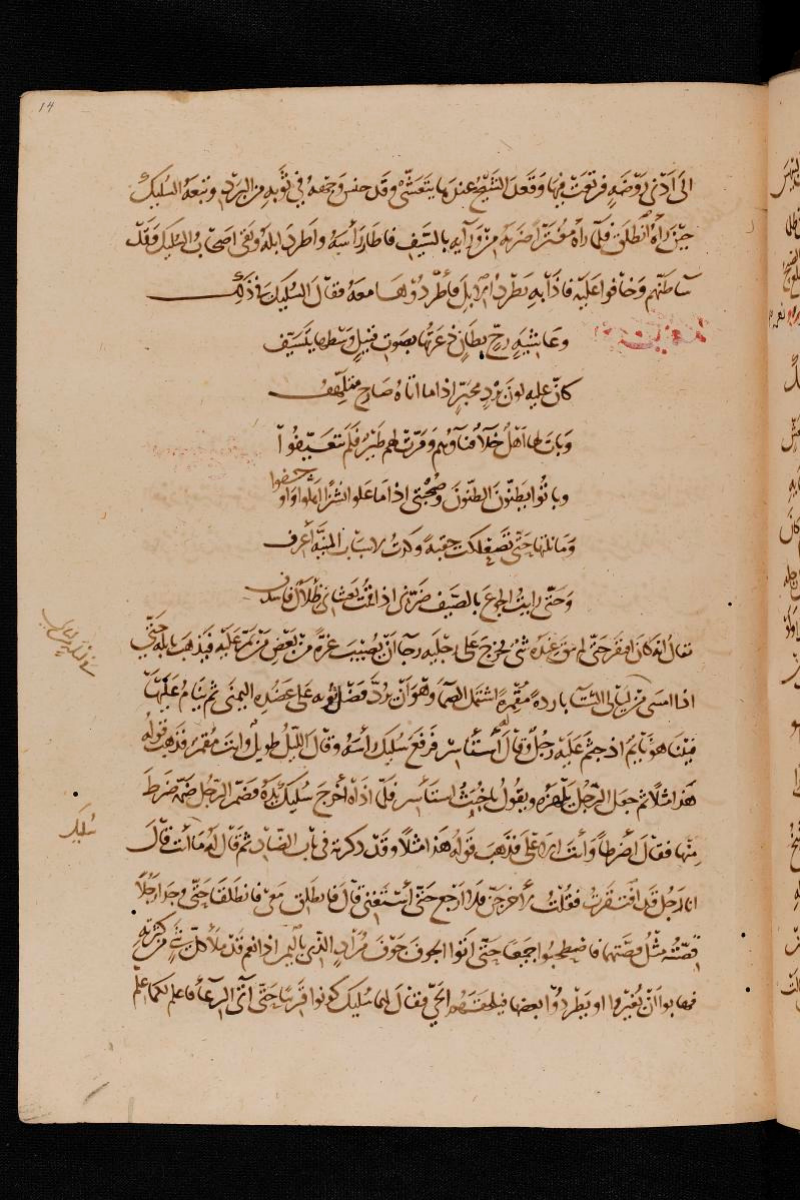 14
الى ادنى روضة فرتعت فيها وقعد الشيخ عندها يتعشى وقد خنس وجهه في ثوبه من البرد وتبعه السليك
حين راه انطلق فلما راه مغترا ضربه من ورايه بالسيف فاطار راسه واطرد ابله وبقى اصحاب السليك وقد
ساء ظنهم وخافوا عليه فاذا به يطرد الابل فأطردوها معه فقال السليك في ذلك
وعاشية رح بطان ذعرتها بصوت قتيل وسطها يتسيف
كان عليه لون برد محبر اذا ما اتاه صارخ متلهف
وبات لها اهل خلاء فناؤهم ومرت لهم طير فلم يتعيفوا
وباتوا يظنون الظنون وصحبتي اذا ما علوا نشزا اهلوا واوجفوا
وما نلتها حتى تصعلكت حقبة وكدت لاسباب المنية أعرف
وحتى رايت الجوع بالصيف ضرني اذا قمت يغشاني ظلال فاسدف
يقال انه كان افتقر حتى لم يبق عنده شئ فخرج على رجليه رجا ان يصيب غرة من بعض من يمر عليه فيذهب بابله حتى
اذا امسى من ليالي الشتا باردة مقمرة اشتمل الصما وهو ان يرد فضل ثوبه على عضده اليمنى ثم ينام عليها
فبينا هو نايم اذ جثم عليه رجل وقال استاسر فرفع سليك راسه وقال الليل طويل وانت مقمر فذهب قوله
هذا مثلا ثم جعل الرجل يلهزه ويقول يا خبيث استاسر فلما اذاه أخرج سليك يده فضم الرجل ضمة ضرط
منها فقال أضرطا وأنت الاعلى فذهب قوله هذا مثلا وقد ذكرته في باب الضاد ثم قال له ما انت قال
انا رجل قد افتقرت فقلت لاخرجن فلا ارجع حتى أستغني قال فانطلق معي فانطلقا حتى وجدا رجلا
قصته مثل قصتهما فاصطحبوا جميعا حتى اتوا الجوف جوف مراد الذي باليمن اذا نعم قد ملا كل شئ من كثرته
فهابوا ان يغيروا او يطردوا بعضها فيلحقهم الحي فقال لهما سليك كونوا قريبا حتى اتى الرعا فاعلم لكما علم
سليك